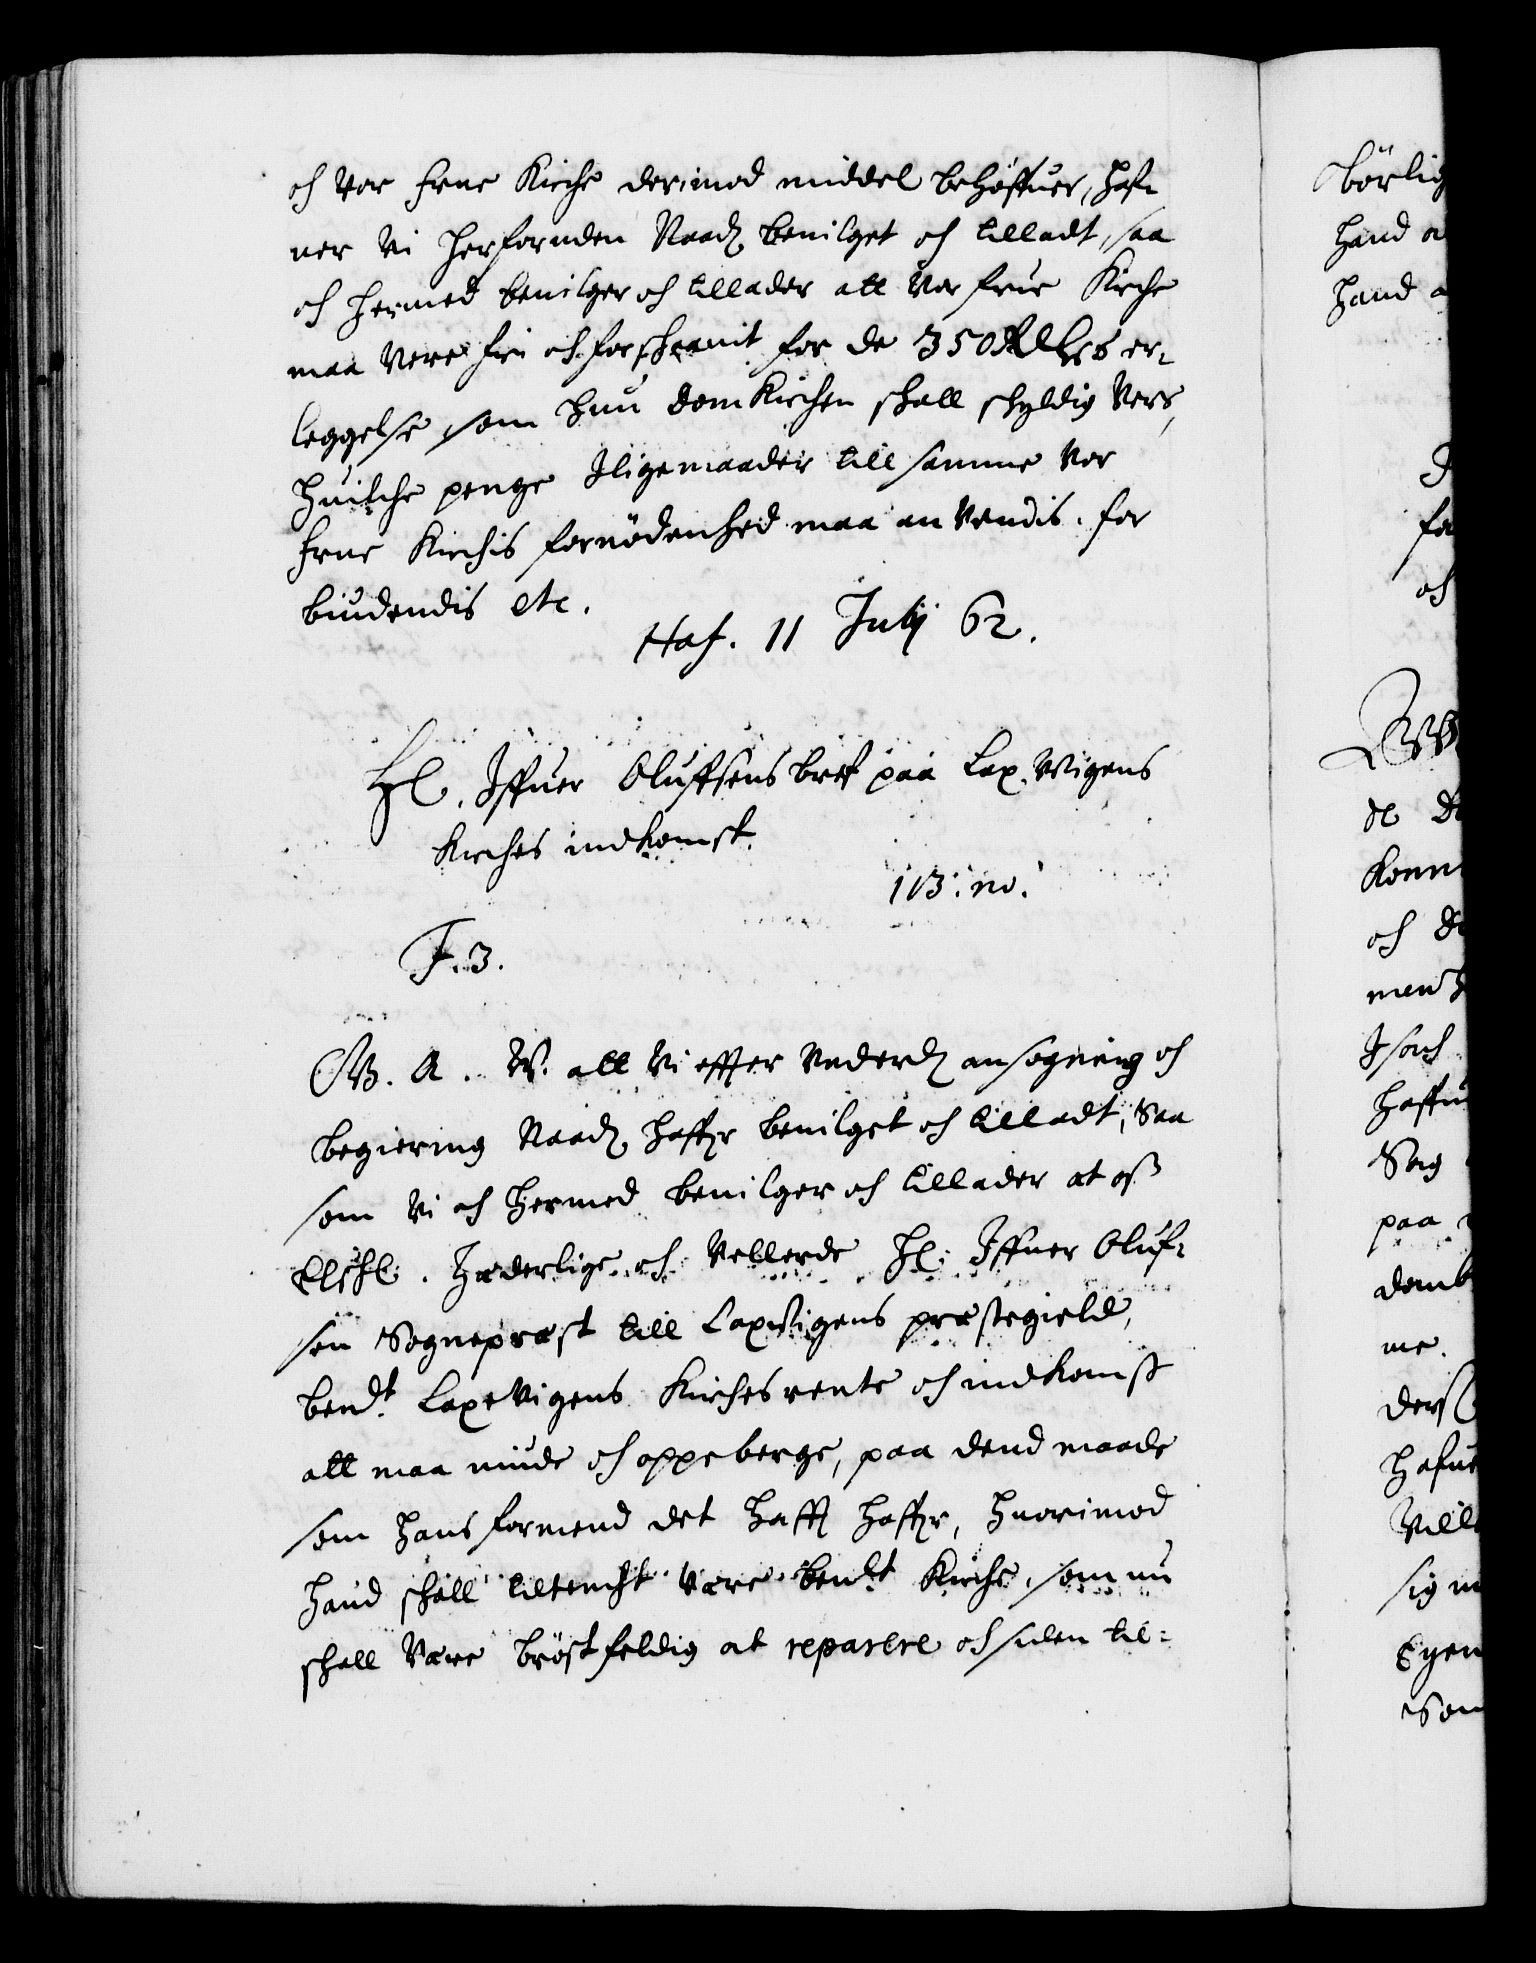 och vor frue Kirche derimod middel behøffuer, haf-
uer Vi herforuden Naadl bevilget och tilladt, saa
och hermed bevilger och tillader att Vor frue Kirche
maa vere fri och forschaanit for de 350 Rdlrs er-
leggelse som hun domkirchen schall schyldig Vere,
huilche penge Iligemaader till samme Vor
frue Kirchis fornødenhed maa anvendis. for
biudendis etc.
Haf. 11 July 62.
Hr. Iffuer Oluffsens bref paa Lax Wigens
Kirches indkomst.
113: no.
F. 3.
G. A. W. att Vi effter Underd ansøgning och
begiering Naadl haffr bevilget och tilladt, Saa
som Vi och hermed bevilger och tillader at oss
Elschl. Hæderlige och Vellerde Hr. Iffuer Oluf-
sen Sognepræst till Laxvigens præstegield,
bemt Laxevigens Kirches rente och indkomst
att maa niude och oppeberge, paa dend maade
som hans formend det hafft haffr, huorimod
hand schall tiltencht være bemt Kirche, som nu
schall Være brøstfeldig at reparere och siden til-
børlig
hand
hand
och
paa
me.